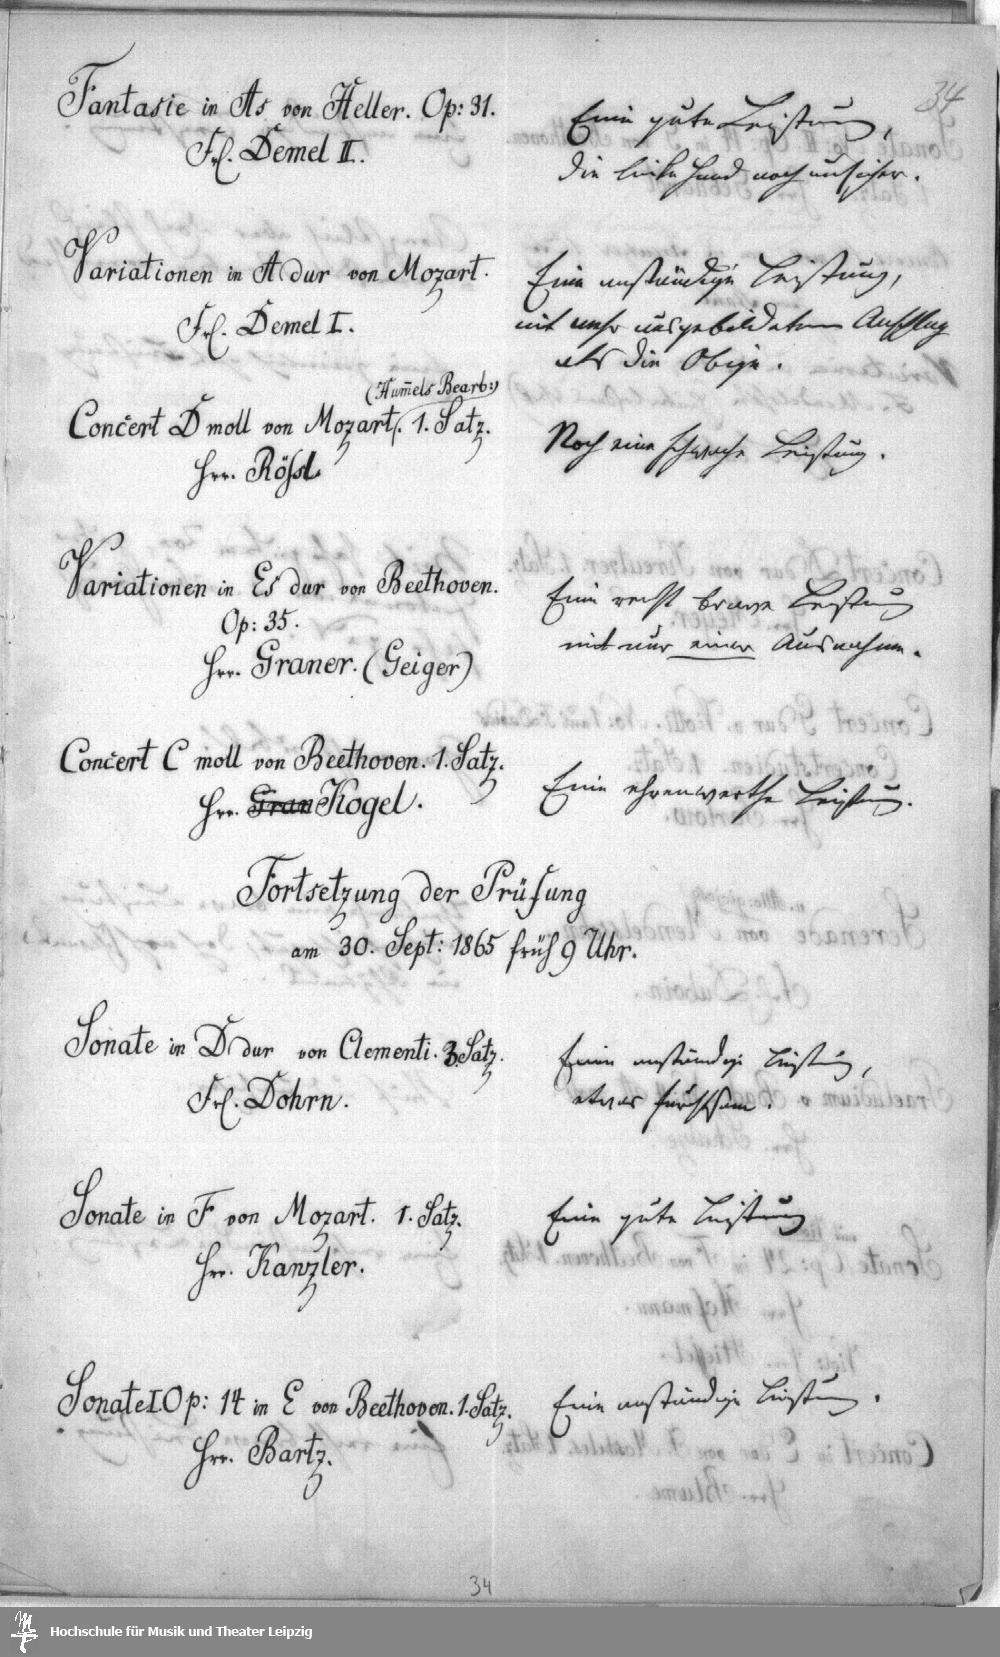 34
Fantasie in As von Heller. Op: 31.
Frl. Demel II.
Eine gute Leistung,
die linke Hand noch unsicher.
Variationen in A dur von Mozart.
Frl. Demel I.
Eine anständige Leistung,
mit mehr ausgebildetem Anschlag
als die Obige.
(Hum̅els Bearb:)
Concert D moll von Mozart. 1. Satz.
Hrr. Rössl.
Noch eine schwache Leistung.
Variationen in Es dur von Beethoven.
Op: 35.
Hrr. Graner. (Geiger)
Eine recht brave Leistung
mit nur einer Ausnahme.
Concert C moll von Beethoven. 1. Satz.
Hrr. Gran Kogel.
Eine ehrenwerthe Leistung.
Fortsetzung der Prüfung
am 30. Sept: 1865 früh 9 Uhr.
Sonate in D dur von Clementi. 3. Satz.
Frl. Dohrn.
Eine anständige Leistung,
etwas furchtsam.
Sonate in F von Mozart. 1. Satz.
Hrr. Kanzler.
Eine gute Leistung
Sonate I. Op: 14 in E von Beethoven. 1. Satz.
Hrr. Bartz.
Eine anständige Leistung.
34
Hochschule für Musik und Theater Leipzig